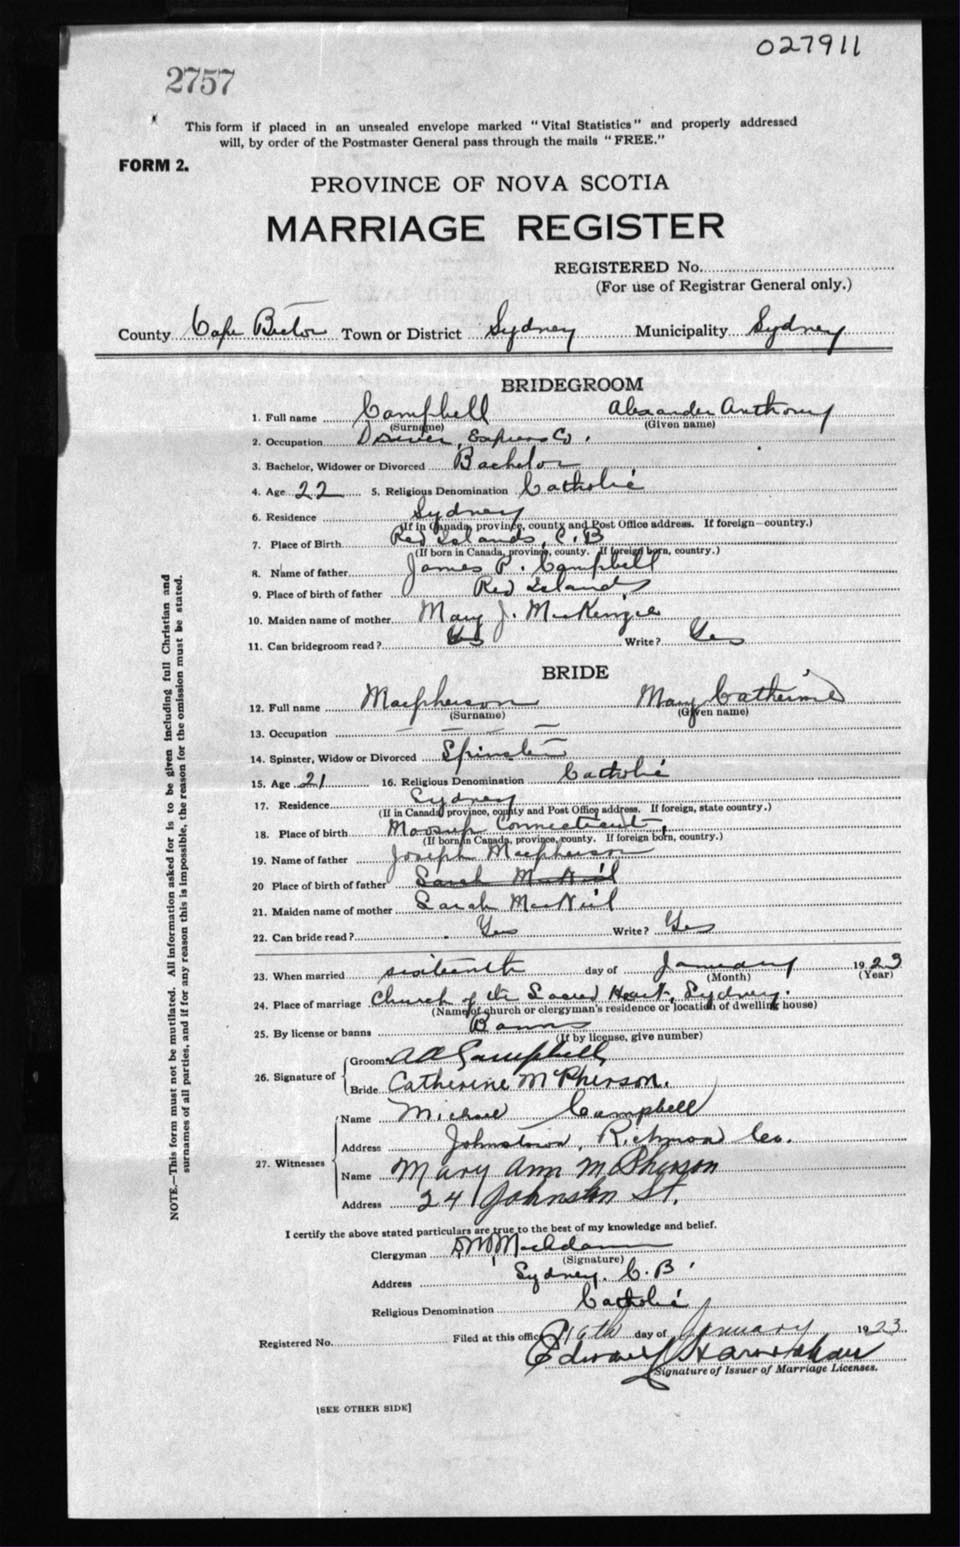 027911
2757
This form if placed in an unsealed envelope marked "Vital Statistics" and properly addressed
will, by order of the Postmaster General pass through the mails "FREE."
FORM 2.
PROVINCE OF NOVA SCOTIA
MARRIAGE REGISTER
REGISTERED No.
(For use of Registrar General only.)
County Cape Breton Town or District Sydney Municipality Sydney
BRIDEGROOM
1. Full name Campbell Alexander Anthony
(Surname) (Given name)
2. Occupation Driver, Express Co.
3. Bachelor, Widower or Divorced Bachelor
4. Age 22 5. Religious Denomination Catholic
6. Residence Sydney
(If in Canada, province, county and Post Office address. If foreign—country.)
7. Place of Birth Red Islands, C.B
(If born in Canada, province, county. If foreign born, country.)
8. Name of father James P. Campbell
9. Place of birth of father Red Islands
10. Maiden name of mother Mary J. MacKenzie
11. Can bridegroom read? Yes Write? Yes
BRIDE
12. Full name Macpherson Mary Catherine
(Surname) (Given name)
13. Occupation — — — —
14. Spinster, Widow or Divorced Spinster
15. Age 21 16. Religious Denomination Catholic
17. Residence Sydney
(If in Canada, province, county and Post Office address. If foreign, state country.)
18. Place of birth Moosup Connecticut
(If born in Canada, province, county. If foreign born, country.)
19. Name of father Joseph Macpherson
20 Place of birth of father Sarah McNeil
21. Maiden name of mother Sarah MacNeil
22. Can bride read? Yes Write? Yes
23. When married sixteenth day of January 1923
(Month) (Year)
24. Place of marriage Church of the Sacred Heart, Sydney.
(Name of church or clergyman's residence or location of dwelling house)
25. By license or banns Banns
(If by license, give number)
26. Signature of Groom A A Campbell
Bride Catherine McPherson.
27. Witnesses Name Michael Campbell
Address Johnstown, Richmond Co.
Name Mary Ann McPherson
Address 241 Johnston St.
I certify the above stated particulars are true to the best of my knowledge and belief.
Clergyman MacAdam
(Signature)
Address Sydney, C.B.
Religious Denomination Catholic
Registered No. Filed at this office 16th day of January 1923.
Edward
Signature of Issuer of Marriage Licenses.
[SEE OTHER SIDE]
NOTE.—This form must not be mutilated. All information asked for is to be given including full Christian and
surnames of all parties, and if for any reason this is impossible, the reason for the omission must be stated.